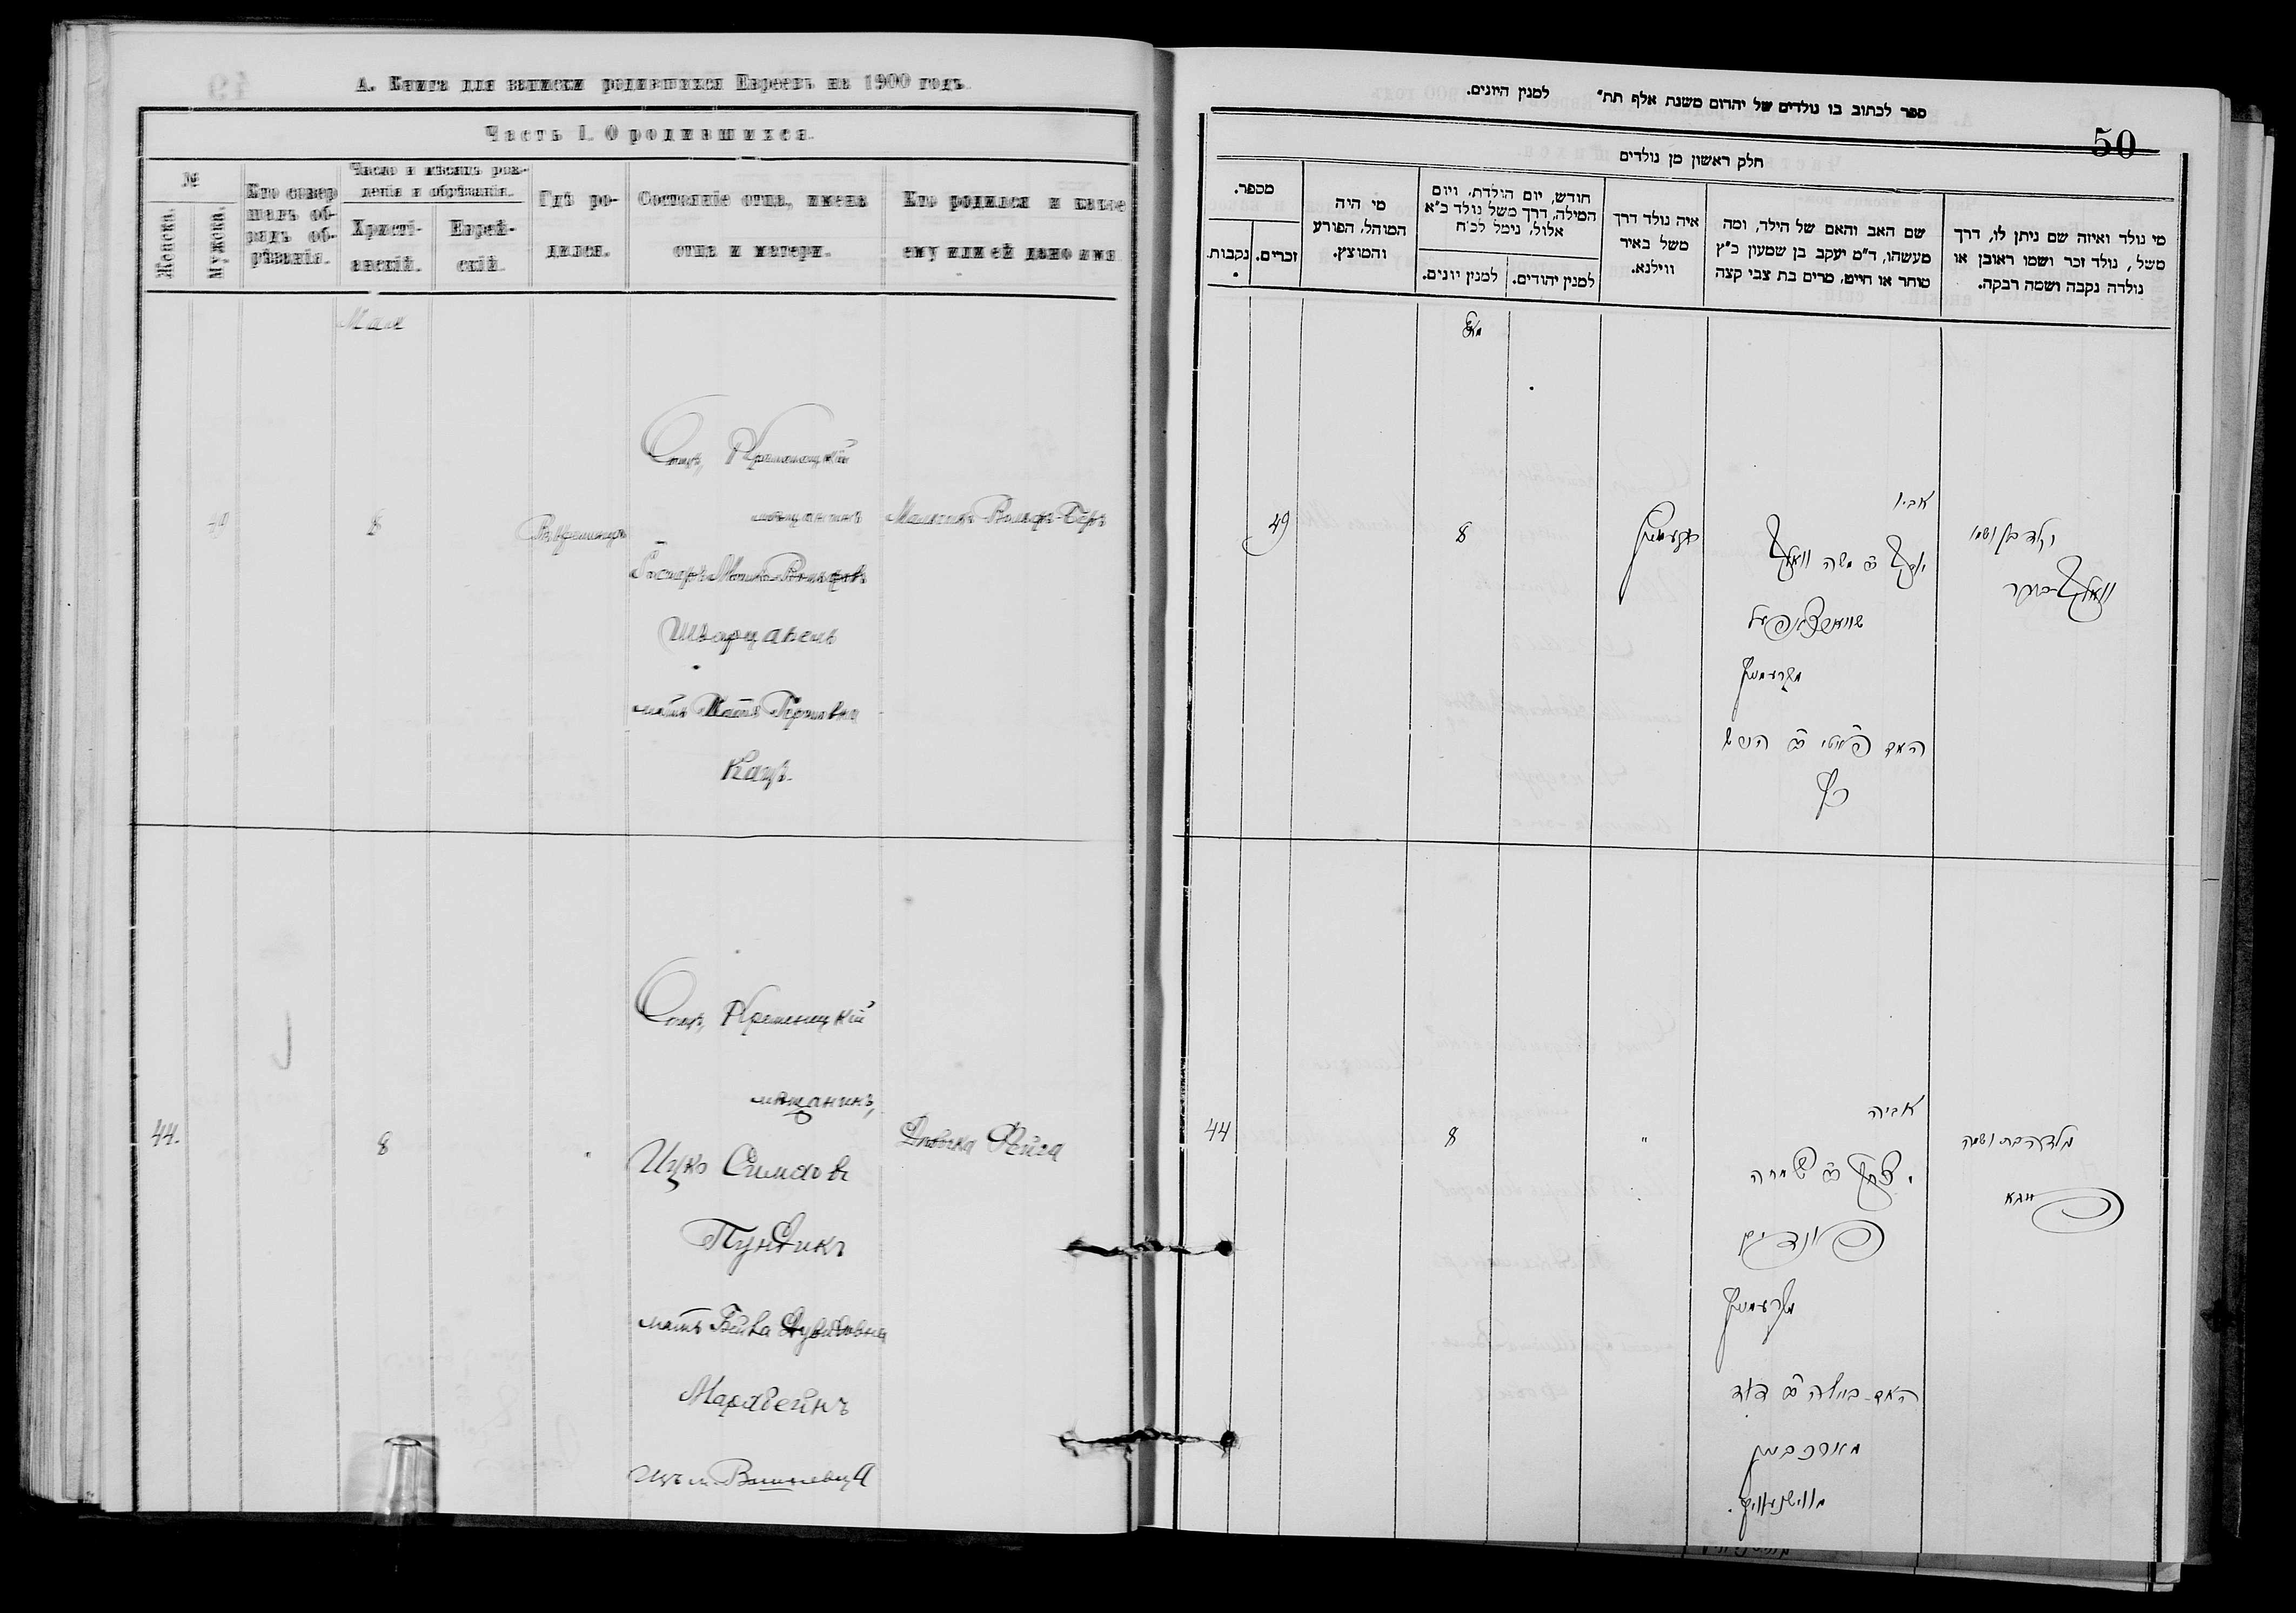 А. Книга для записки родившихся Евреевъ на 1900 годъ.
Часть I. О родившихся.
№
Женска.
Мужска.
Кто совер
шалъ об-
рядъ об-
рѣзанія.
Число и мѣсяцъ рож-
денія и обрѣзанія.
Христі-
анскій.
Еврей-
скій.
Гдѣ ро-
дился.
Состояніе отца, имена
отца и матери.
Кто родился и какое
ему или ей дано имя
Мая
49
8
Отецъ, Кременецкій
мѣщанинъ
Шварцапель
мать
Кацъ.
Мальчикъ Вольфъ-Беръ
44.
8
Отецъ, Кременецкій
мѣщанинъ,
Ицко Симховъ
Пундикъ
мать Бейла Дувидовна
Марквейнъ
изъ м. Вишневца
Дѣвочка Фейга
ספר לכתוב בו נולדים של יהדום משנת אלף תת״ למנין היונים.
50
חלק ראשון מן נולדים
מספר.
נקבות.
זכרים.
מי היה
המוהל, הפורע
והמוצץ.
חודש, יום הולדת, ויום
המילה, דרך משל נולד כ״א
אלול, נימל לכ״ח
למנין יונים.
למנין יהודים.
איה נולד דרך
משל באיר
ווילנא.
שם האב והאם של הילד, ומה
מעשהו, ד״מ יעקב בן שמעון כ״ץ
סוחר או חייט, מרים בת צבי קצה
מי נולד ואיזה שם ניתן לו, דרך
משל, נולד זכר ושמו ראובן או
נולדה נקבה ושמה רבקה.
מאי
49
8
אביו
יוסף ב״ר משה וואלף
שווארצאפעל
מקרעמניץ
האם
כץ
ילד בן ושמו
וואלף-בער
44
8
"
אביה
יצחק ב״ר שמחה
פונדיק
מקרעמניץ
האם בײלה ב״ר דוד
מארכביין
מווישניוויץ.
נולדה בת ושמה
פייגא